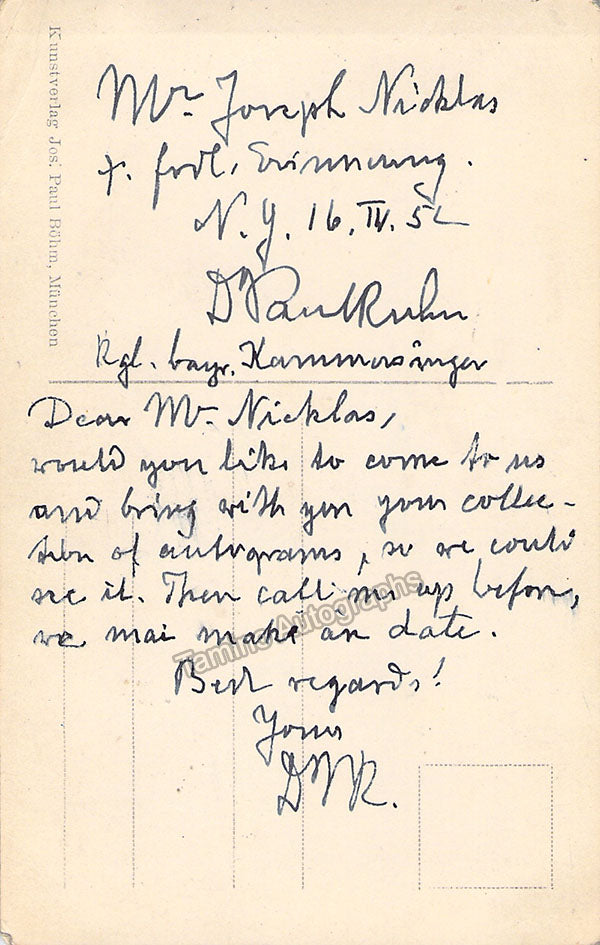 Kunstverlag Jos. Paul Böhm, München
Mr. Joseph Nicklas
z. frdl. Erinnerung.
N.Y. 16. IV. 52
Dr Paul Kuhn
Kgl. bayr. Kammersänger
Dear Mr. Nicklas,
would you like to come to us
and bring with you your collec-
tion of autograms, so we could
see it. Then call me up before,
we mai make an date.
Best regards!
Yours
Dr PK.
Tamino Autographs